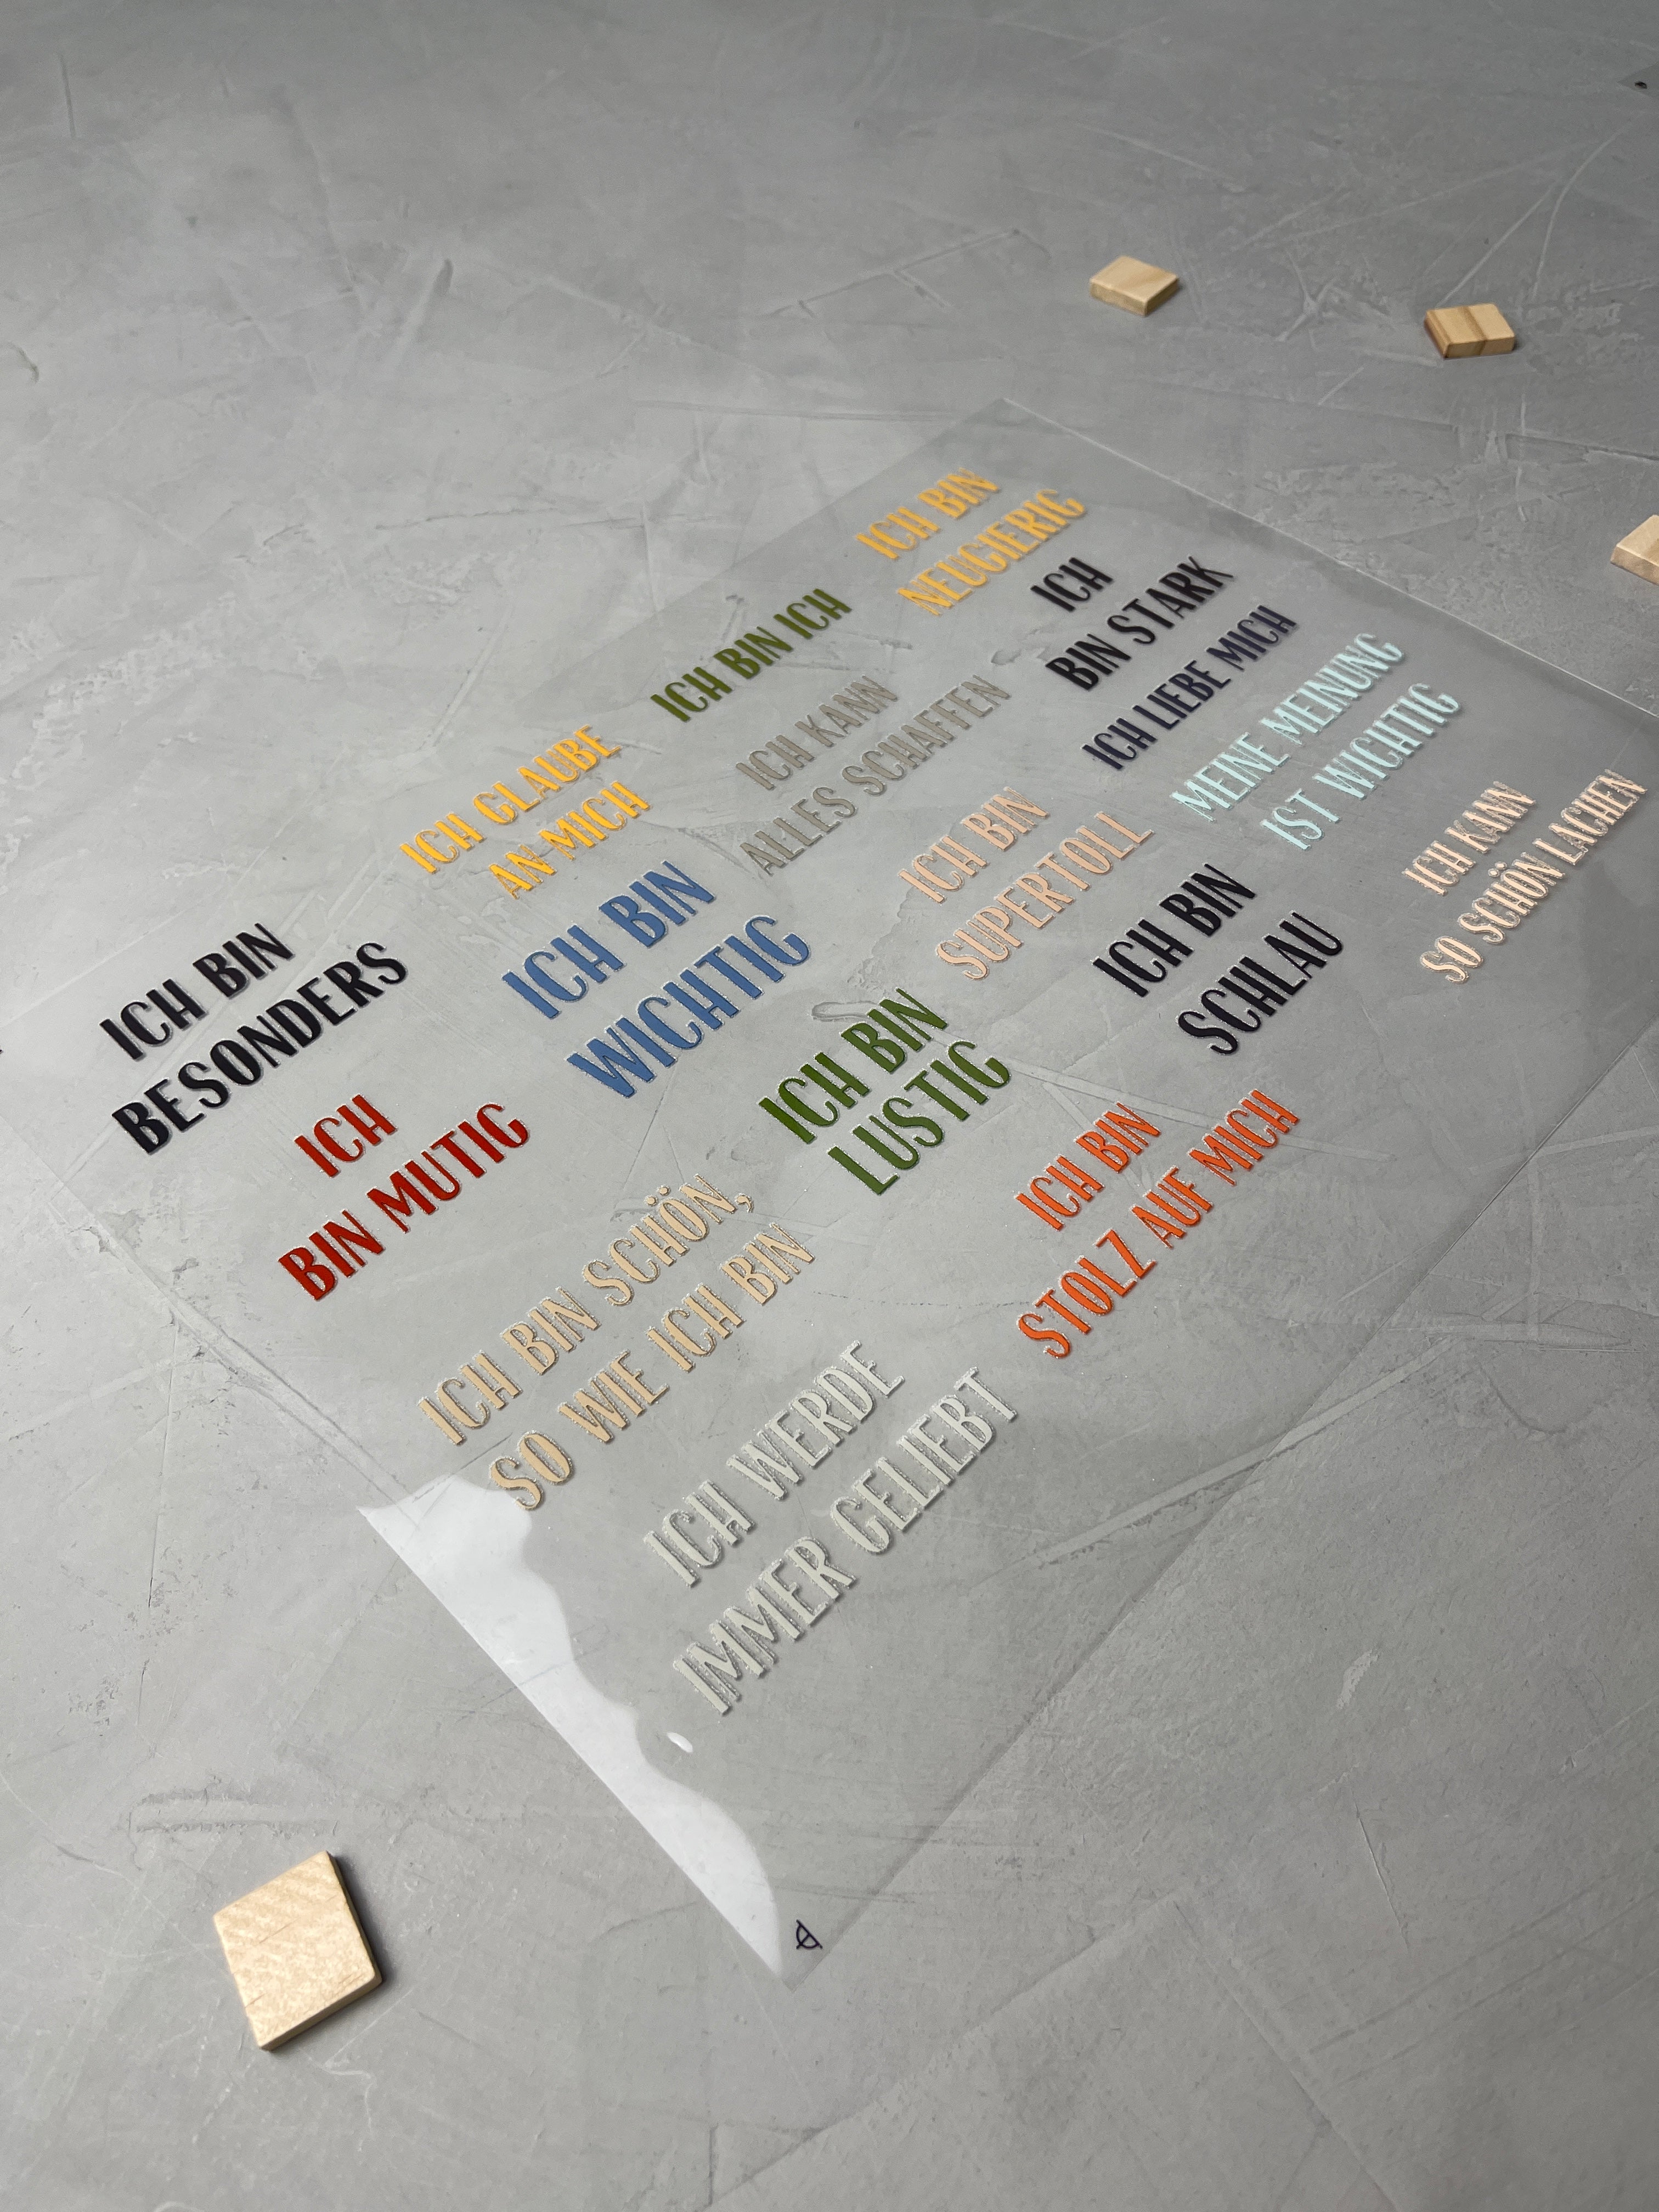 ICH BIN
NEUGIERIG
ICH BIN ICH
ICH
BIN STARK
ICH LIEBE MICH
ICH KANN
ALLES SCHAFFEN
ICH GLAUBE
AN MICH
MEINE MEINUNG
IST WICHTIG
ICH KANN
SO SCHÖN LACHEN
ICH BIN
SUPERTOLL
ICH BIN
WICHTIG
ICH BIN
BESONDERS
ICH BIN
SCHLAU
ICH BIN
LUSTIG
ICH
BIN MUTIG
ICH BIN
STOLZ AUF MICH
ICH BIN SCHÖN,
SO WIE ICH BIN
ICH WERDE
IMMER GELIEBT